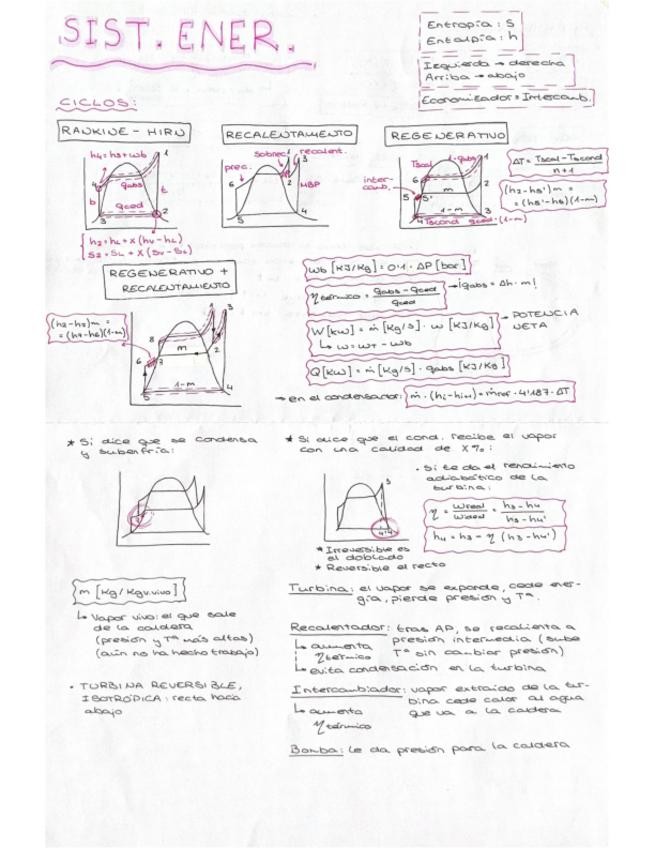 SIST. ENER.
Entropía: S
Entalpía: h
Izquierda → derecha
Arriba → abajo
Economizador = Intercamb.
CICLOS:
RANKINE - HIRN
RECALENTAMIENTO
REGENERATIVO
h4 = h3 + wb
qabs
qced
b
t
1
2
3
4
h2 = hL + x (hv - hL)
S2 = SL + x (Sv - SL)
sobrec.
recalent.
prec.
MBP
1
2
3
4
5
6
intercamb.
Tscal
qabs
m
1-m
Tscond
qced · (1-m)
1
2
3
4
5
6
ΔT = Tscal - Tscond / n+1
(h2 - h5')m =
= (h5' - h5)(1-m)
REGENERATIVO +
RECALENTAMIENTO
(h2 - h7)m =
= (h7 - h6)(1-m)
m
1-m
1
2
3
4
5
6
7
8
Wb [KJ/Kg] = 0'1 · ΔP [bar]
η térmico = qabs - qced / qced
→ ¡qabs = Δh · m!
W [KW] = ṁ [Kg/s] · w [KJ/Kg]
↳ w = wT - wb
→ POTENCIA NETA
Q [KW] = ṁ [Kg/s] · qabs [KJ/Kg]
→ en el condensador: ṁ · (hi - hi+1) = ṁref · 4'187 · ΔT
* Si dice que se condensa
y subenfría:
* Si dice que el cond. recibe el vapor
con una calidad de X%:
3
4
4'
* Irreversible es
el doblado
* Reversible el recto
· Si te da el rendimiento
adiabático de la
turbina:
η = Wreal / Wideal = h3 - h4 / h3 - h4'
h4 = h3 - η (h3 - h4')
m [Kg/Kgv.vivo]
↳ Vapor vivo: el que sale
de la caldera
(presión y Tª más altas)
(aún no ha hecho trabajo)
· TURBINA REVERSIBLE,
ISOTRÓPICA: recta hacia
abajo
Turbina: el vapor se expande, cede ener-
gía, pierde presión y Tª.
Recalentador: tras AP, se recalienta a
presión intermedia (sube
Tª sin cambiar presión)
↳ aumenta
η térmico
↳ evita condensación en la turbina
Intercambiador: vapor extraído de la tur-
bina cede calor al agua
que va a la caldera
↳ aumenta
η térmico
Bomba: le da presión para la caldera